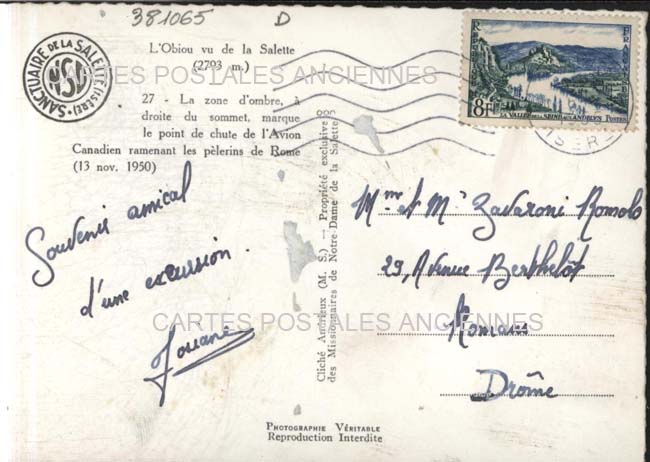 381065 D
SANCTUAIRE DE LA SALETTE (ISERE)
L'Obiou vu de la Salette
(2793 m.)
27 - La zone d'ombre, à
droite du sommet, marque
le point de chute de l'Avion
Canadien ramenant les pèlerins de Rome
(13 nov. 1950)
CARTES POSTALES ANCIENNES
8F
LA VALLÉE DE LA SEINE AUX ANDELYS POSTES
ISERE
Souvenir amical
d'une excursion.
Cliché Amtrieux (M. S.) — Propriété exclusive
des Missionnaires de Notre-Dame de la Salette
Mme et Mr Zavaroni Romolo
29, Avenue Berthelot
Romans
Drôme
CARTES POSTALES ANCIENNES
PHOTOGRAPHIE VÉRITABLE
Reproduction Interdite